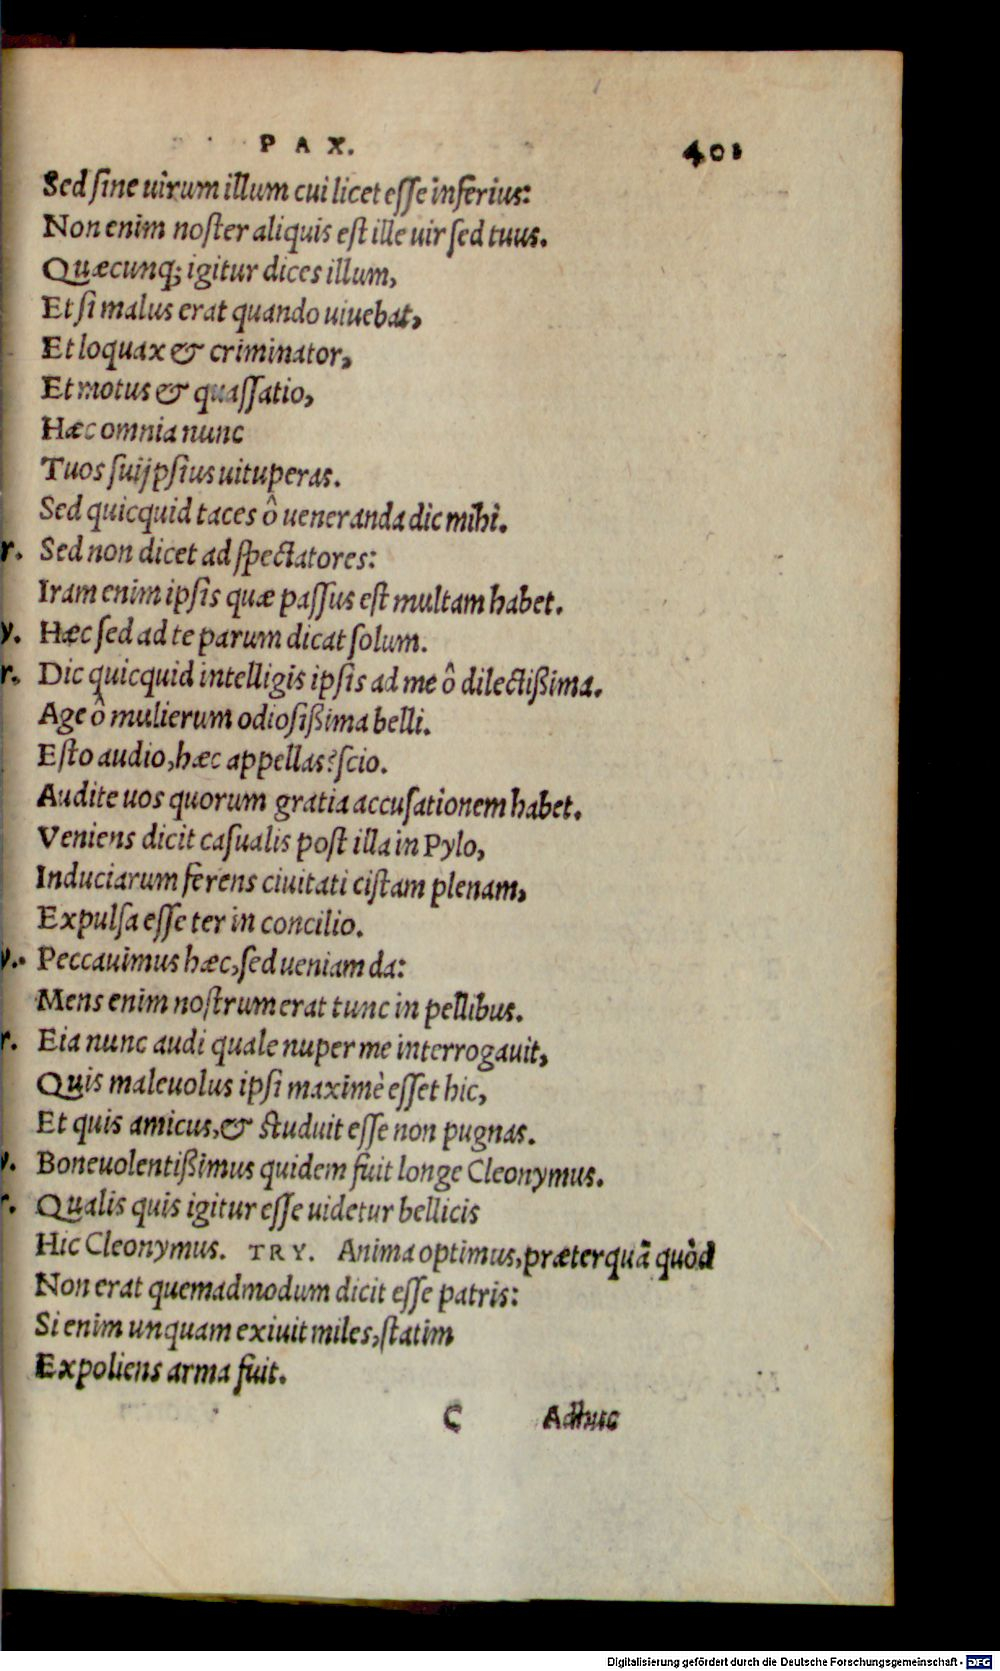 PAX. 401
Sed sine uirum illum cui licet esse inferius:
Non enim noster aliquis est ille uir sed tuus.
Quæcunq; igitur dices illum,
Et si malus erat quando uiuebat,
Et loquax & criminator,
Et motus & quassatio,
Hæc omnia nunc
Tuos suijpsius uituperas.
Sed quicquid taces ô ueneranda dic mihi.
r. Sed non dicet ad spectatores:
Iram enim ipsis quæ passus est multam habet.
y. Hæc sed ad te parum dicat solum.
r. Dic quicquid intelligis ipsis ad me ô dilectißima.
Age ô mulierum odiosißima belli.
Esto audio, hæc appellas? scio.
Audite uos quorum gratia accusationem habet.
Veniens dicit casualis post illa in Pylo,
Induciarum ferens ciuitati cistam plenam,
Expulsa esse ter in concilio.
y. Peccauimus hæc, sed ueniam da:
Mens enim nostrum erat tunc in pellibus.
r. Eia nunc audi quale nuper me interrogauit,
Quis maleuolus ipsi maximè esset hic,
Et quis amicus, & studuit esse non pugnas.
y. Boneuolentißimus quidem fuit longe Cleonymus.
r. Qualis quis igitur esse uidetur bellicis
Hic Cleonymus. TRY. Anima optimus, præterquã quòd
Non erat quemadmodum dicit esse patris:
Si enim unquam exiuit miles, statim
Expoliens arma fuit.
C Adhuc
Digitalisierung gefördert durch die Deutsche Forschungsgemeinschaft - DFG